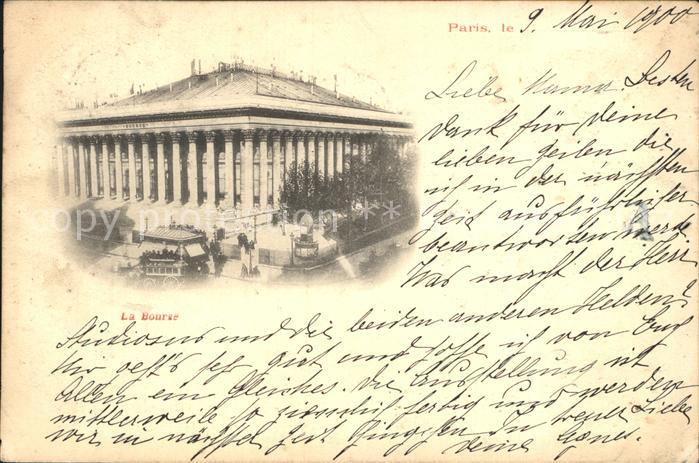 Paris, le 9. Mai 1900
Liebe Mama. Besten
dank für deine
lieben Zeilen die
ich in der nächsten
Zeit ausführlicher
beantworten werde
Was macht der Herr
La Bourse
Studiosus und die beiden anderen Helden?
Mir geht's sehr gut und hoffe ich von Euch
Allen ein Gleiches. Die Ausstellung ist
mittlerweile so ziemlich fertig und werden
wir in nächster Zeit hingehen In treuer Liebe
deine Agnes.